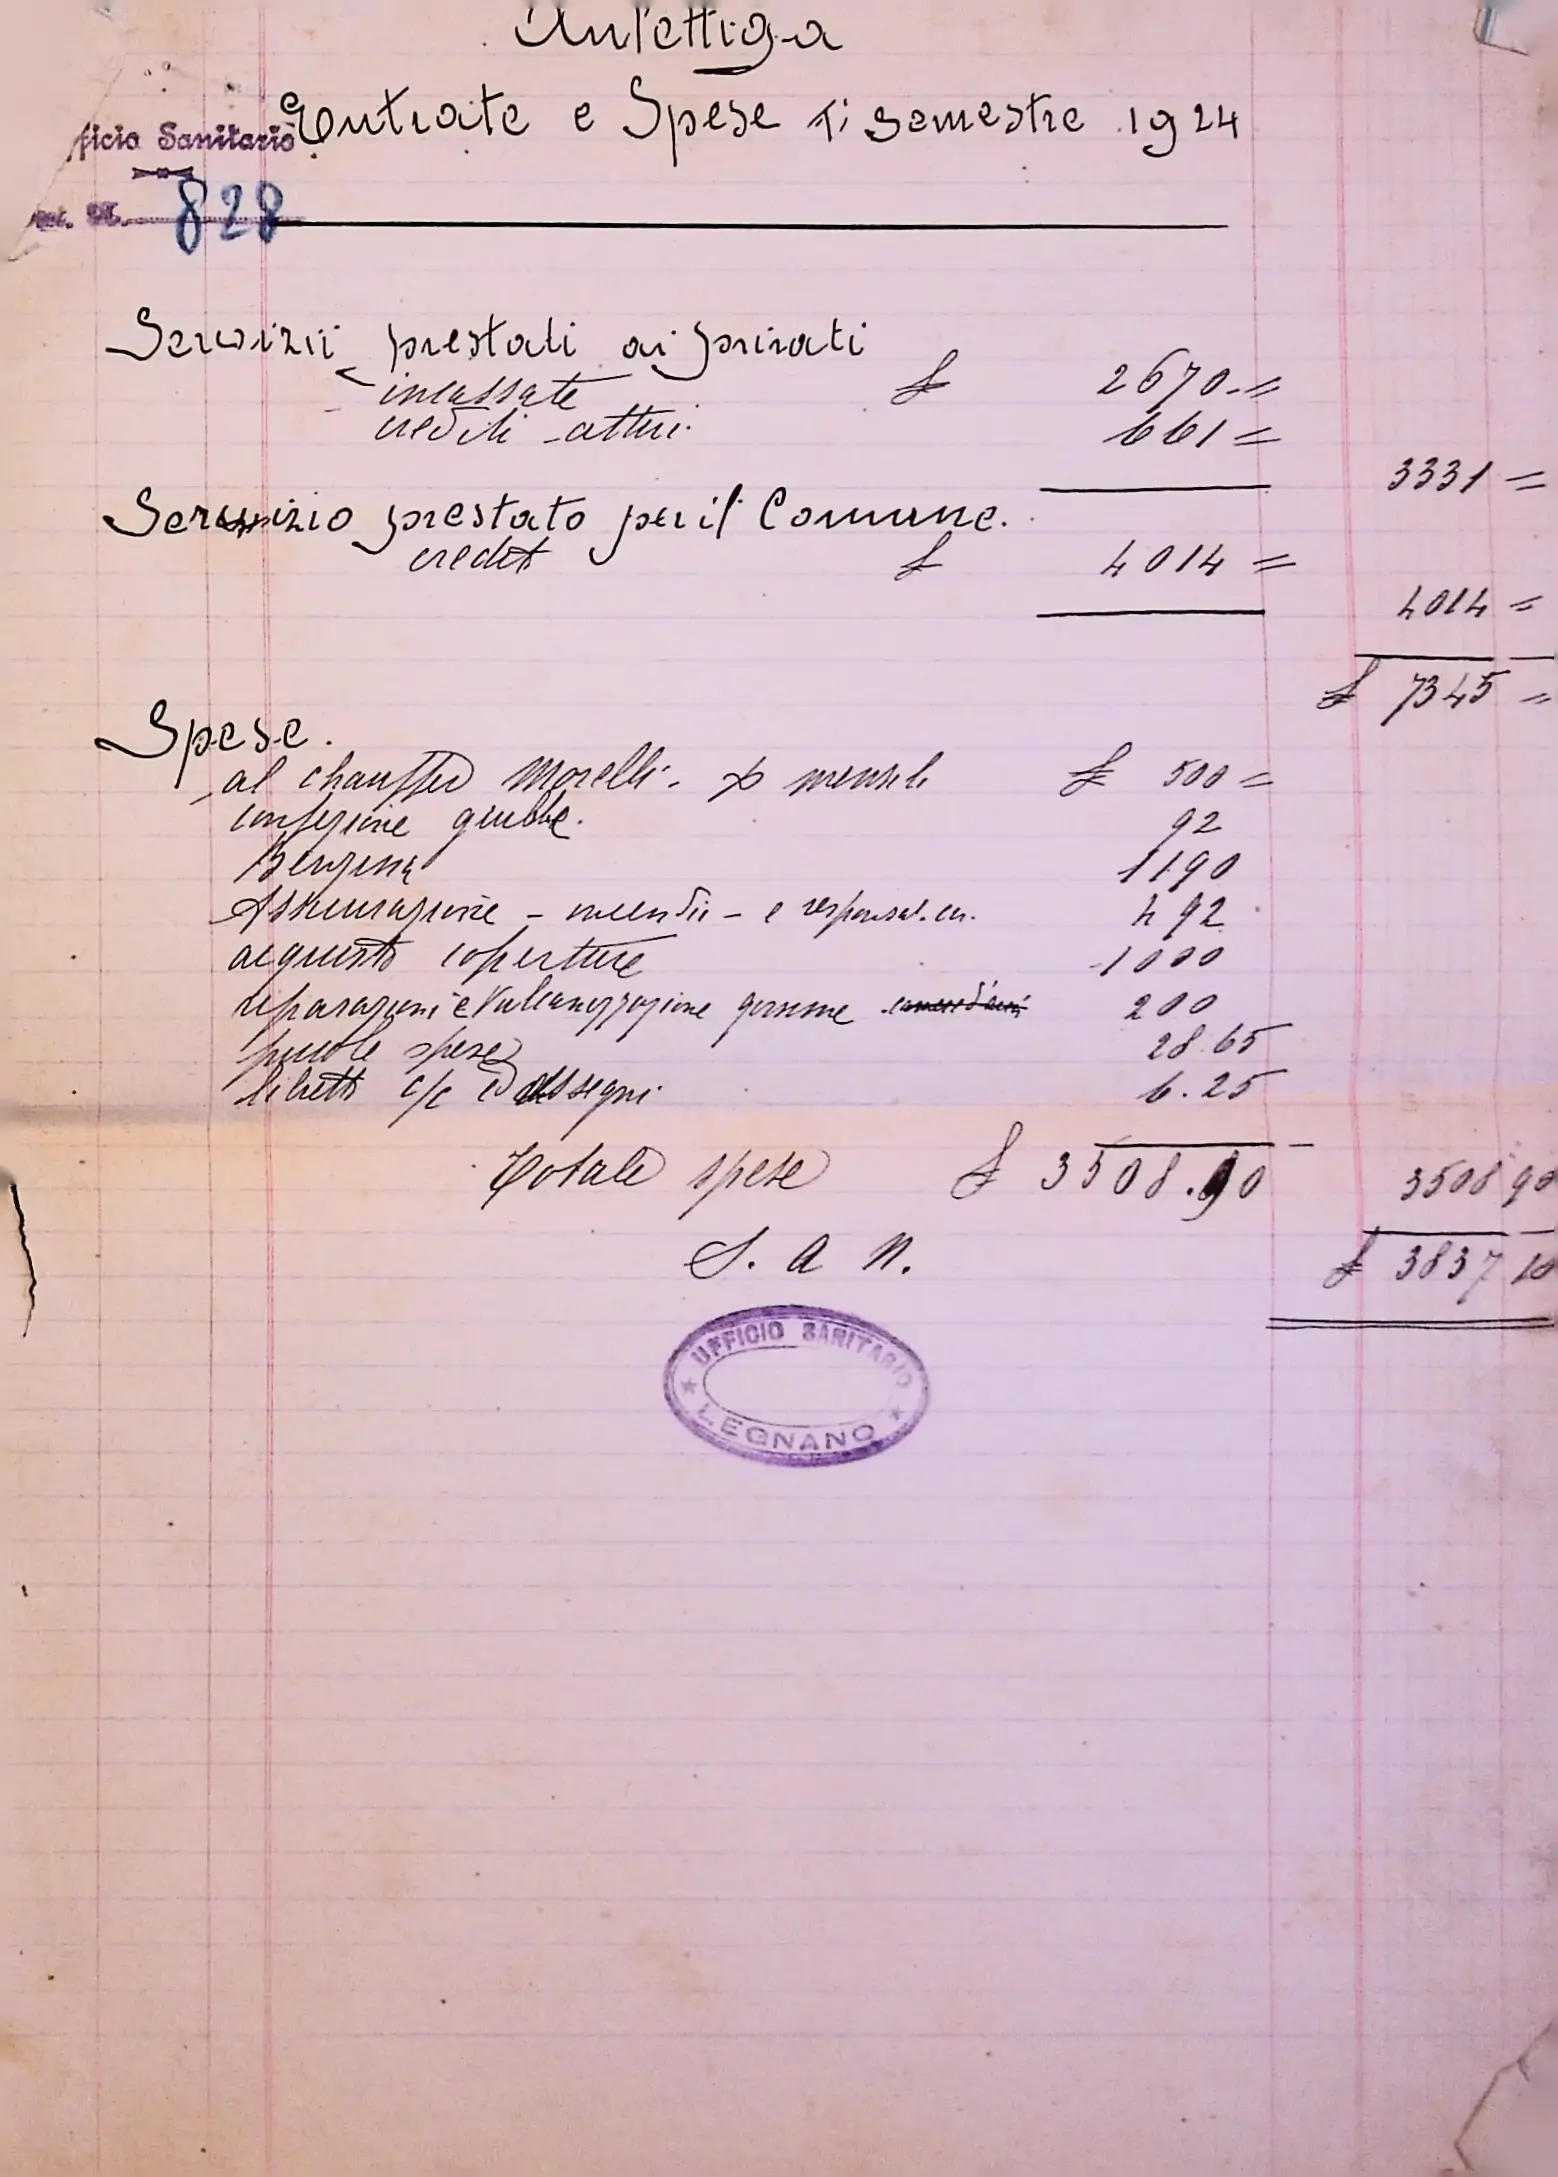 Autolettiga
Entrate e Spese Iº semestre 1924
ficio Sanitario
828
Servizii prestati ai privati
incassate £ 2670.=
crediti attivi. 661=
3331=
Servizio prestato per il Comune.
credito £ 4014=
4014=
£ 7345=
Spese.
al chauffer Morelli - mensili £ 500=
confezione giubbe. 92
Benzina 1190
Assicurazione - incendio - e responsab. civ. 492
acquisto coperture 1000
riparazioni e Vulcanizzazione gomme 200
piccole spese 28.65
libretti c/c ed assegni 6.25
Totale spese £ 3508.90 3508 90
S. a N. £ 3837 10
UFFICIO SANITARIO
LEGNANO